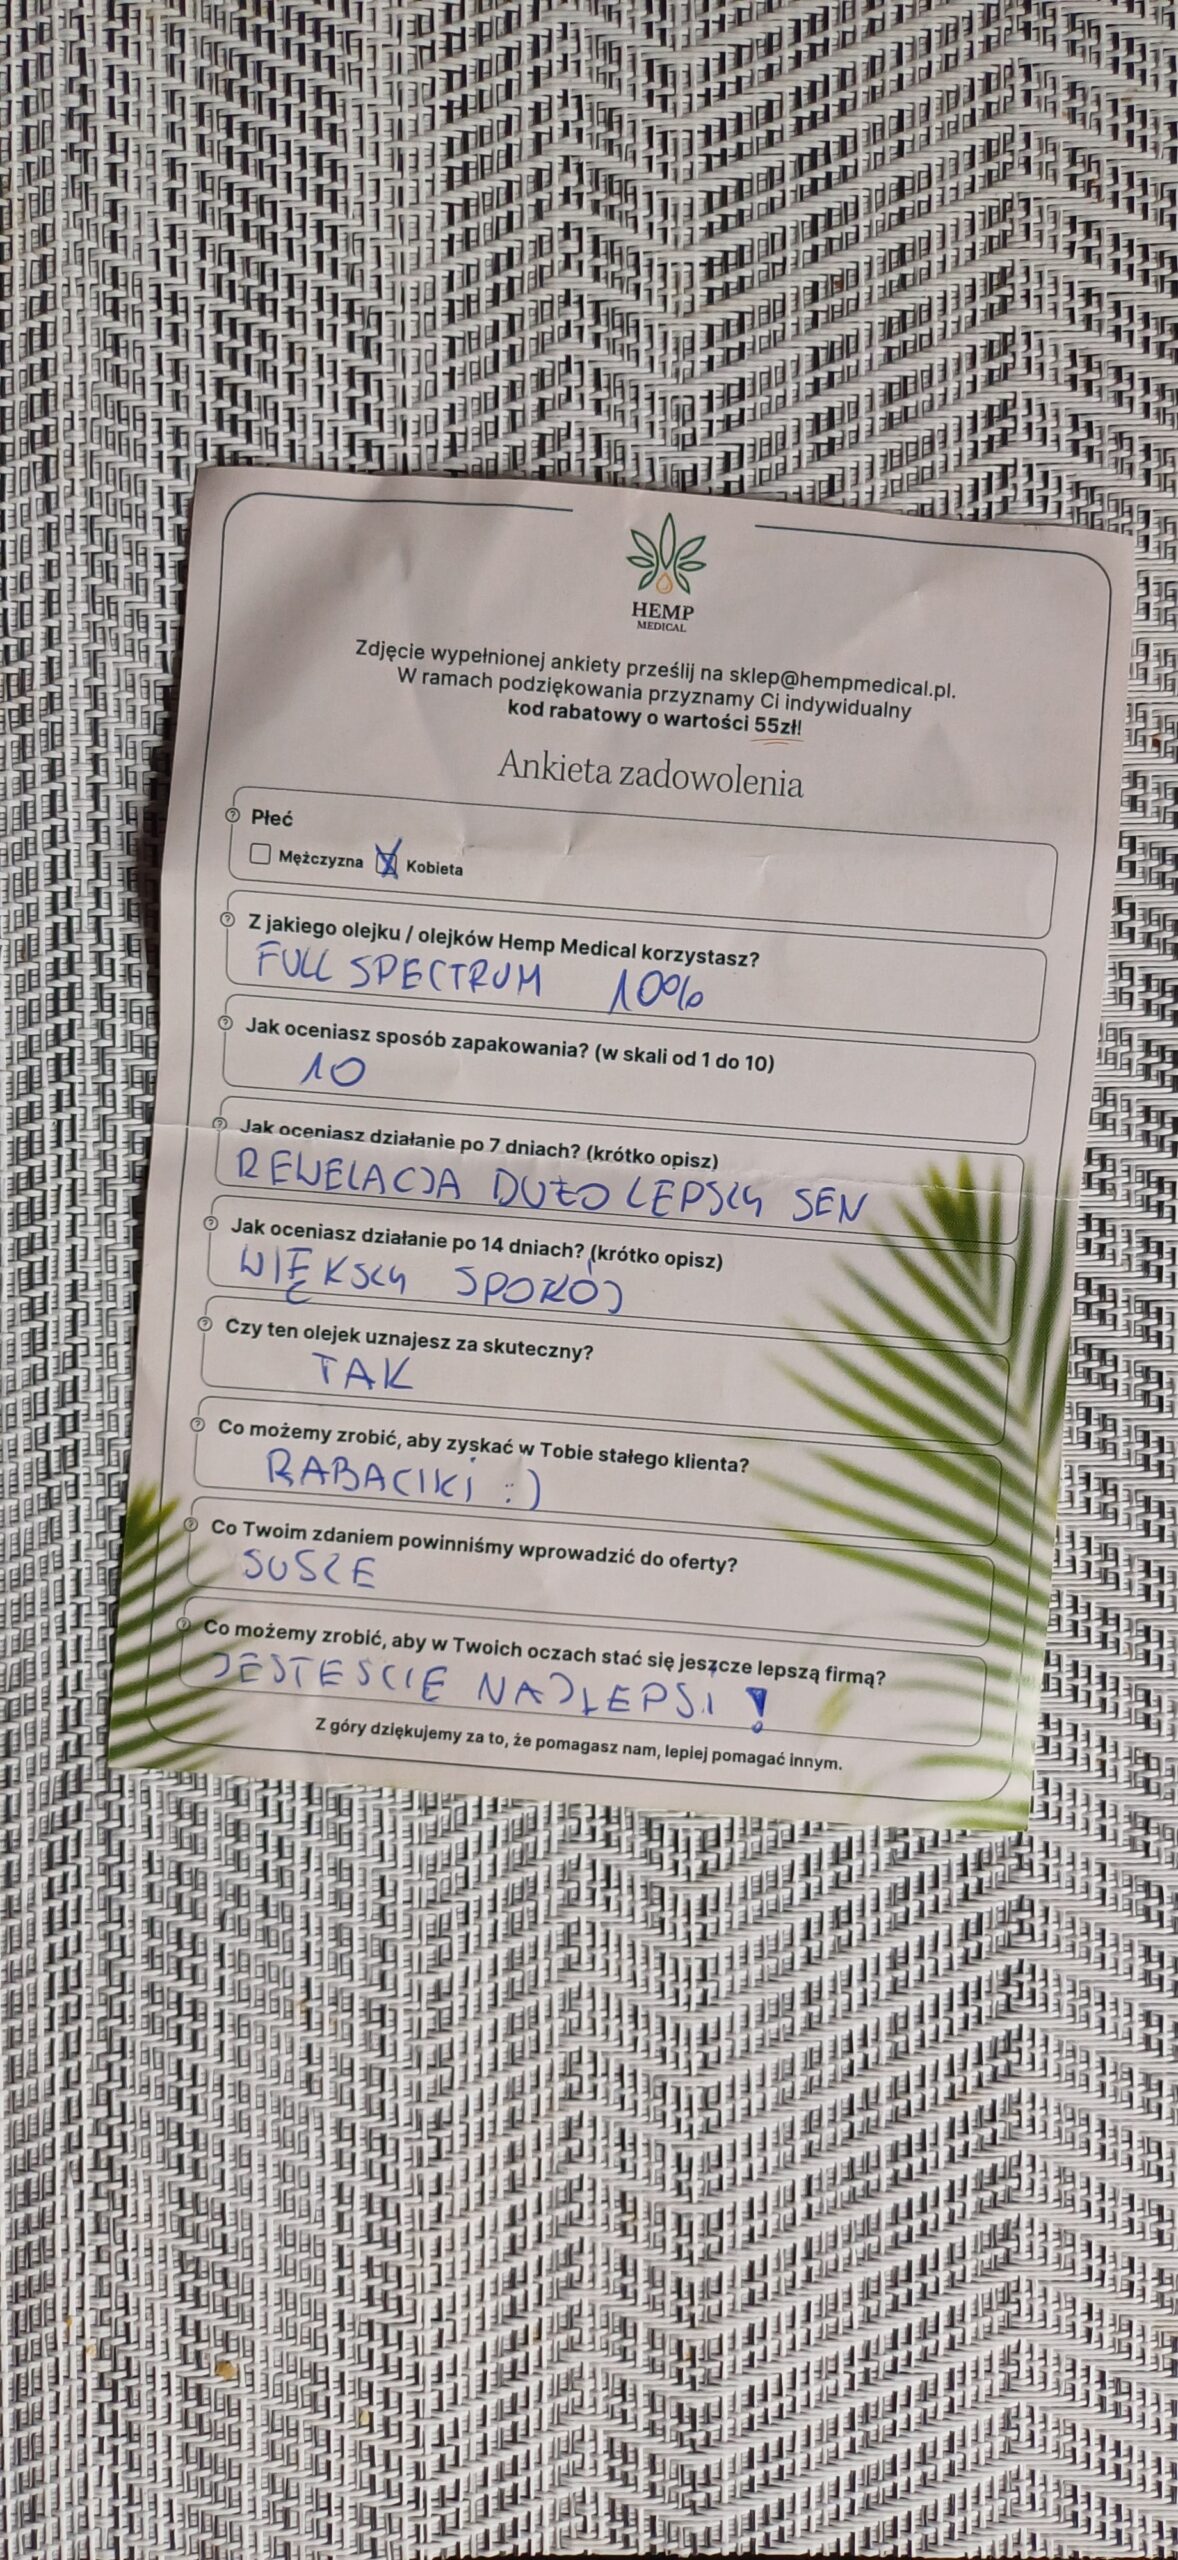 HEMP
MEDICAL
Zdjęcie wypełnionej ankiety prześlij na sklep@hempmedical.pl.
W ramach podziękowania przyznamy Ci indywidualny
kod rabatowy o wartości 55zł!
Ankieta zadowolenia
Płeć
Mężczyzna Kobieta
Z jakiego olejku / olejków Hemp Medical korzystasz?
FULL SPECTRUM 10%
Jak oceniasz sposób zapakowania? (w skali od 1 do 10)
10
Jak oceniasz działanie po 7 dniach? (krótko opisz)
REWELACJA DUŻO LEPSZY SEN
Jak oceniasz działanie po 14 dniach? (krótko opisz)
WIĘKSZY SPOKÓJ
Czy ten olejek uznajesz za skuteczny?
TAK
Co możemy zrobić, aby zyskać w Tobie stałego klienta?
RABACIKI :)
Co Twoim zdaniem powinniśmy wprowadzić do oferty?
SUSZE
Co możemy zrobić, aby w Twoich oczach stać się jeszcze lepszą firmą?
JESTEŚCIE NAJLEPSI !
Z góry dziękujemy za to, że pomagasz nam, lepiej pomagać innym.